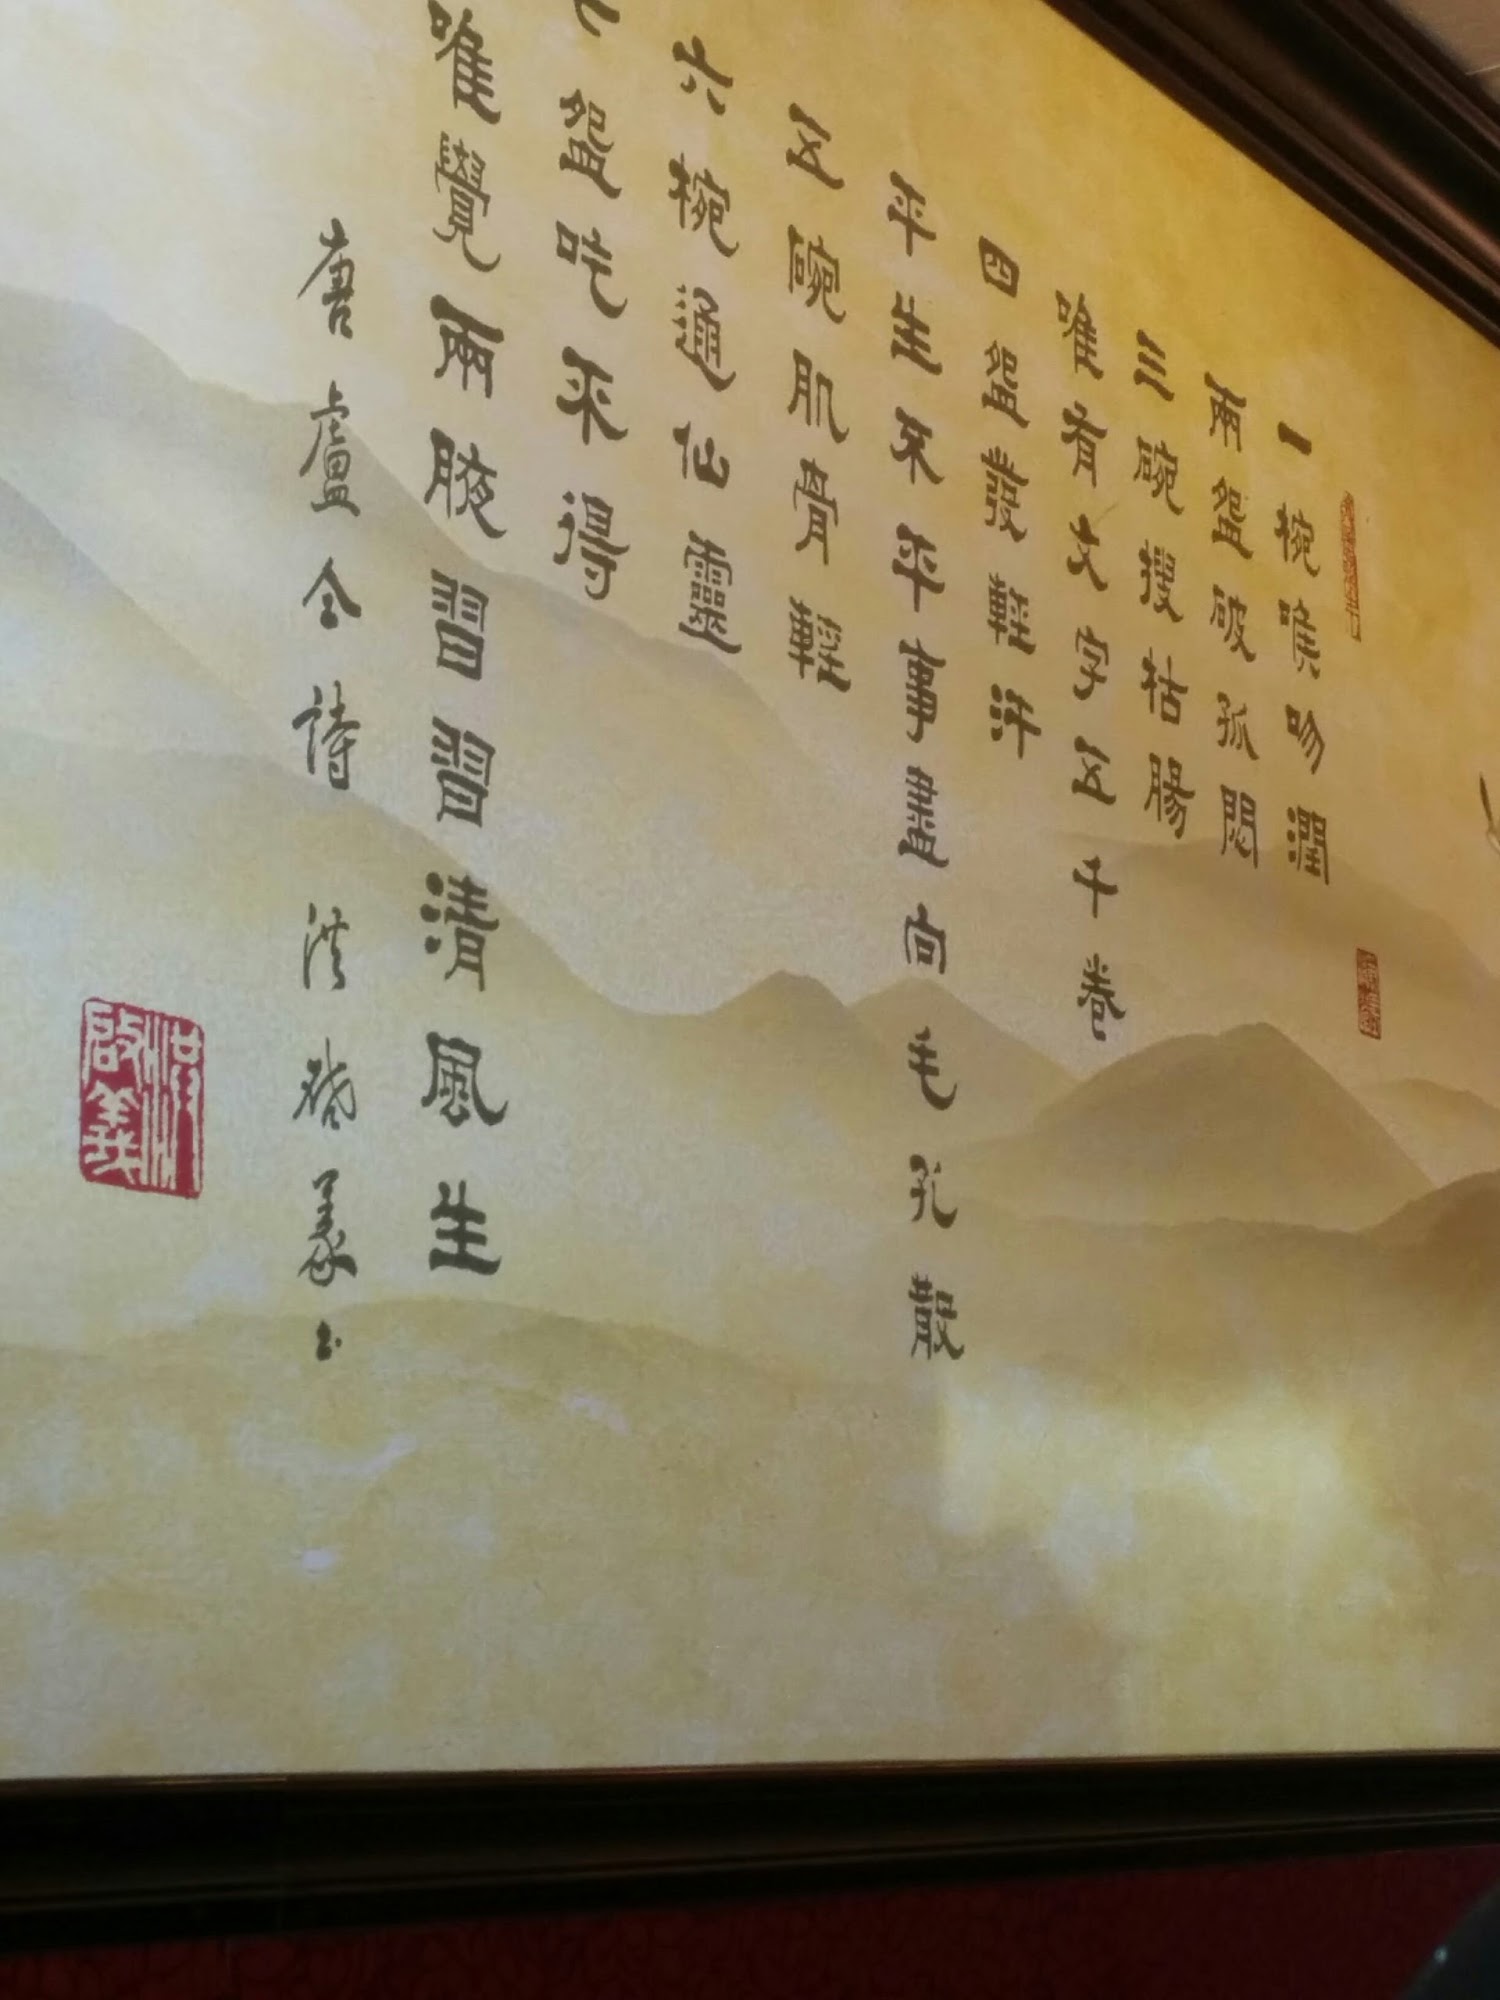 一椀喉吻潤
兩盌破孤悶
三碗搜枯腸
唯有文字五千卷
四盌發輕汗
平生不平事盡向毛孔散
五碗肌骨輕
六椀通仙靈
七盌吃不得
唯覺兩腋習習清風生
唐盧仝詩 洪啟義書
洪啟義